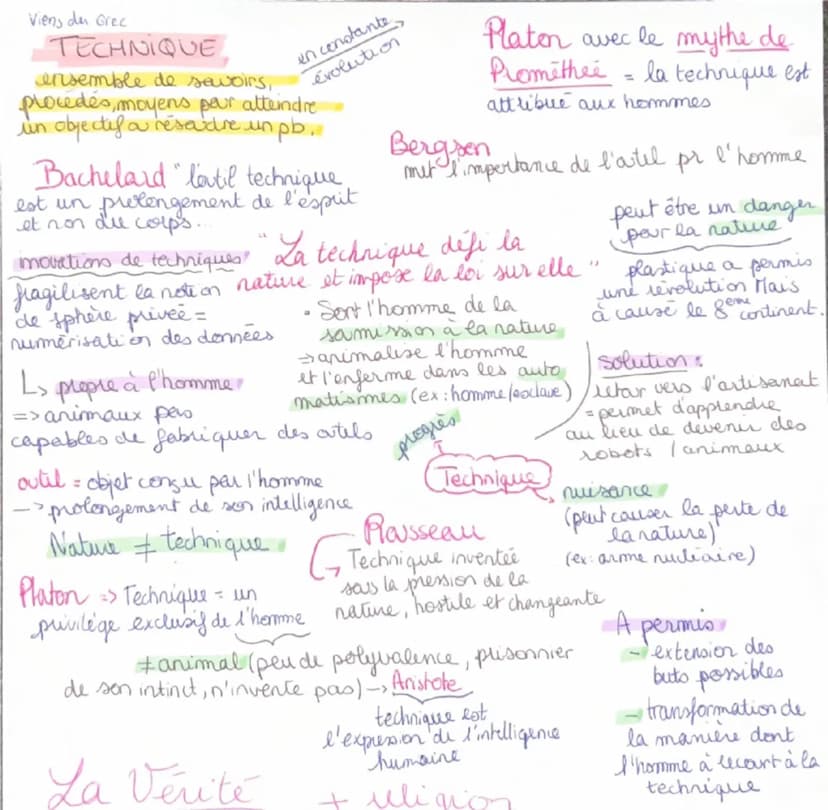 Viens du Grec
TECHNIQUE
en constante
évolution
ensemble de savoirs,
procédés, moyens pour atteindre
un objectif ou résoudre un pb.
Platon avec le mythe de
Prométheé = la technique est
attribué aux hommes
Bergson
met l'importance de l'outil pr l'homme
Bachelard "l'outil technique
est un prolongement de l'esprit
et non du corps..
peut être un danger
pour la nature
plastique a permis
une révolution Mais
à causé le 8ème continent.
innovations de techniques
fragilisent la notion
de sphère privée =
numérisation des données
"La technique défi la
nature et impose la loi sur elle"
• Sort l'homme de la
soumission à la nature
⇒ animalise l'homme
et l'enferme dans les auto
matismes (ex: homme/esclave)
solution :
retour vers l'artisanat
= permet d'apprendre
au lieu de devenir des
robots / animaux
↳ propre à l'homme
=> animaux peu
capables de fabriquer des outils
progrès
Technique
nuisance
(peut causer la perte de
la nature)
(ex: arme nucléaire)
outil = objet conçu par l'homme
-> prolongement de son intelligence
Nature ≠ technique
Rousseau
Technique inventée
sous la pression de la
nature, hostile et changeante
Platon => Technique = un
privilège exclusif de l'homme
≠ animal (peu de polyvalence, prisonnier
de son intinct, n'invente pas) -> Aristote
technique est
l'expression de l'intelligence
humaine
A permis
- extension des
buts possibles
- transformation de
la manière dont
l'homme à recourt à la
technique
La Vérité + religion